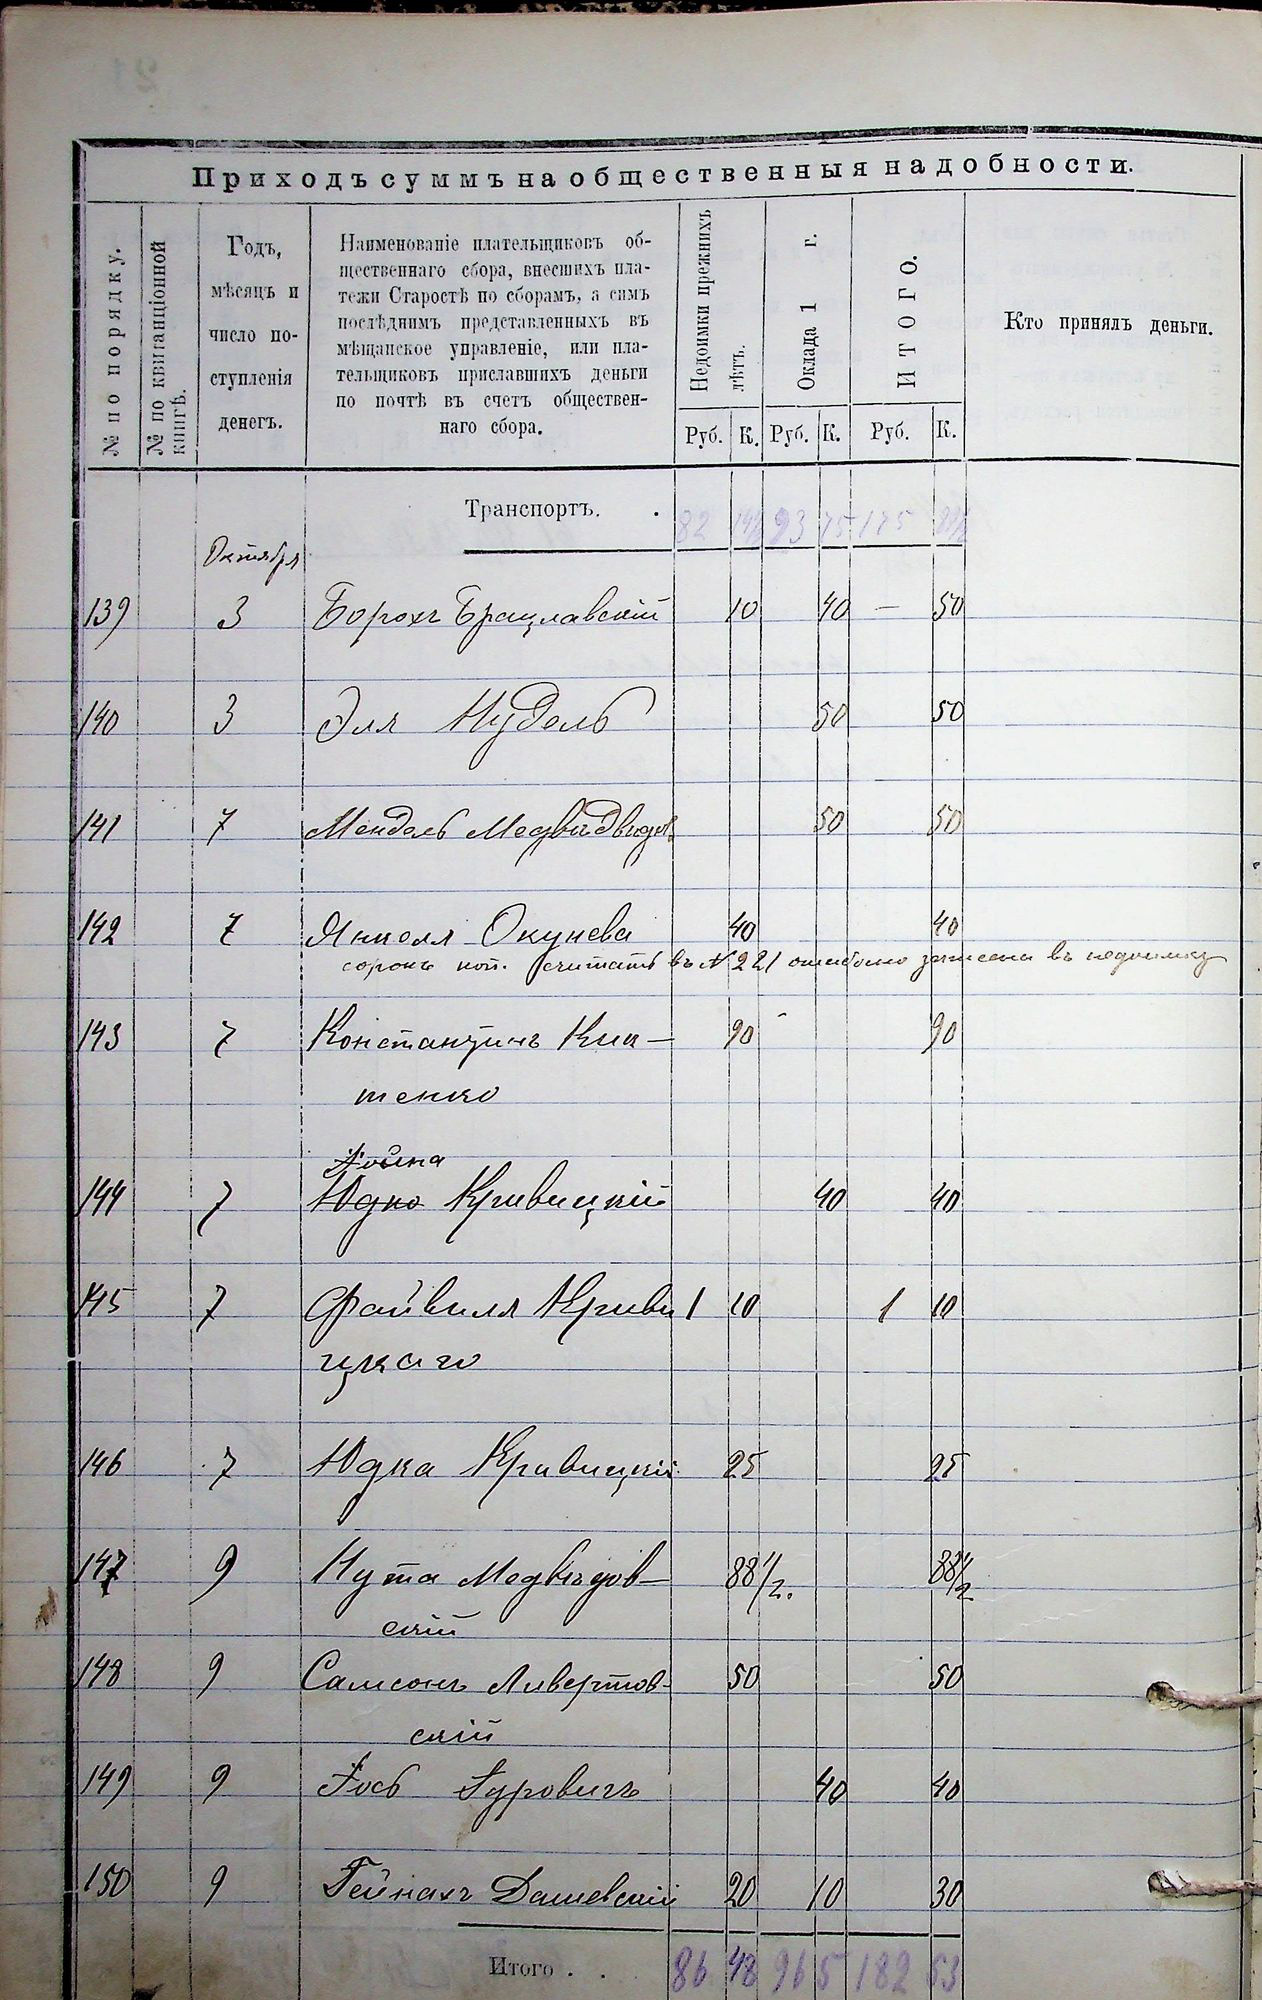 Приходъ суммъ на общественныя надобности.
№ по порядку.
№ по квитанціонной книгѣ.
Годъ,
мѣсяцъ и
число по-
ступленія
денегъ.
Наименованіе плательщиковъ об-
щественнаго сбора, внесшихъ пла-
тежи Старостѣ по сборамъ, а симъ
послѣднимъ представленныхъ въ
мѣщанское управленіе, или пла-
тельщиковъ приславшихъ деньги
по почтѣ въ счетъ обществен-
наго сбора.
Недоимки прежнихъ лѣтъ.
Оклада 1 г.
ИТОГО.
Кто принялъ деньги.
Руб. К. Руб. К. Руб. К.
Транспортъ. . 82 93 75 175
Октября
139 3 Борохъ Брацлавскій 10 40 — 50
140 3 Эля Нудель 50 50
141 7 Мендель 50 50
142 7 Янкеля Окунева 40 40
сорокъ коп. считать въ № 221 ошибочно записана въ недоимку
143 7 Константинъ Кна- 90 90
тенко
144 7 Кривицкій 40 40
145 7 Файвиля Криви 1 10 1 10
цкаго
146 7 Юдка Кривицкій 25 25
147 9 Нута Медвѣдов- 88 1/2. 88 1/2
скій
148 9 Самсонъ Ливертов- 50 50
скій
149 9 Іось Гуровичъ 40 40
150 9 Гейнахъ Дашевскій 20 10 30
Итого . . 86 48 96 5 182 53